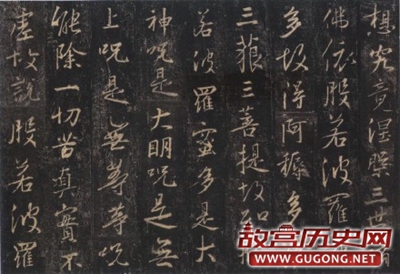 想究竟涅槃三世諸
佛依般若波羅
多故得阿耨多
三藐三菩提故知
般若波羅蜜多是大
神咒是大明咒是無
上咒是無等等咒
能除一切苦真實不
虛故說般若波羅
故宫历史网
WWW.GUGONG.NET